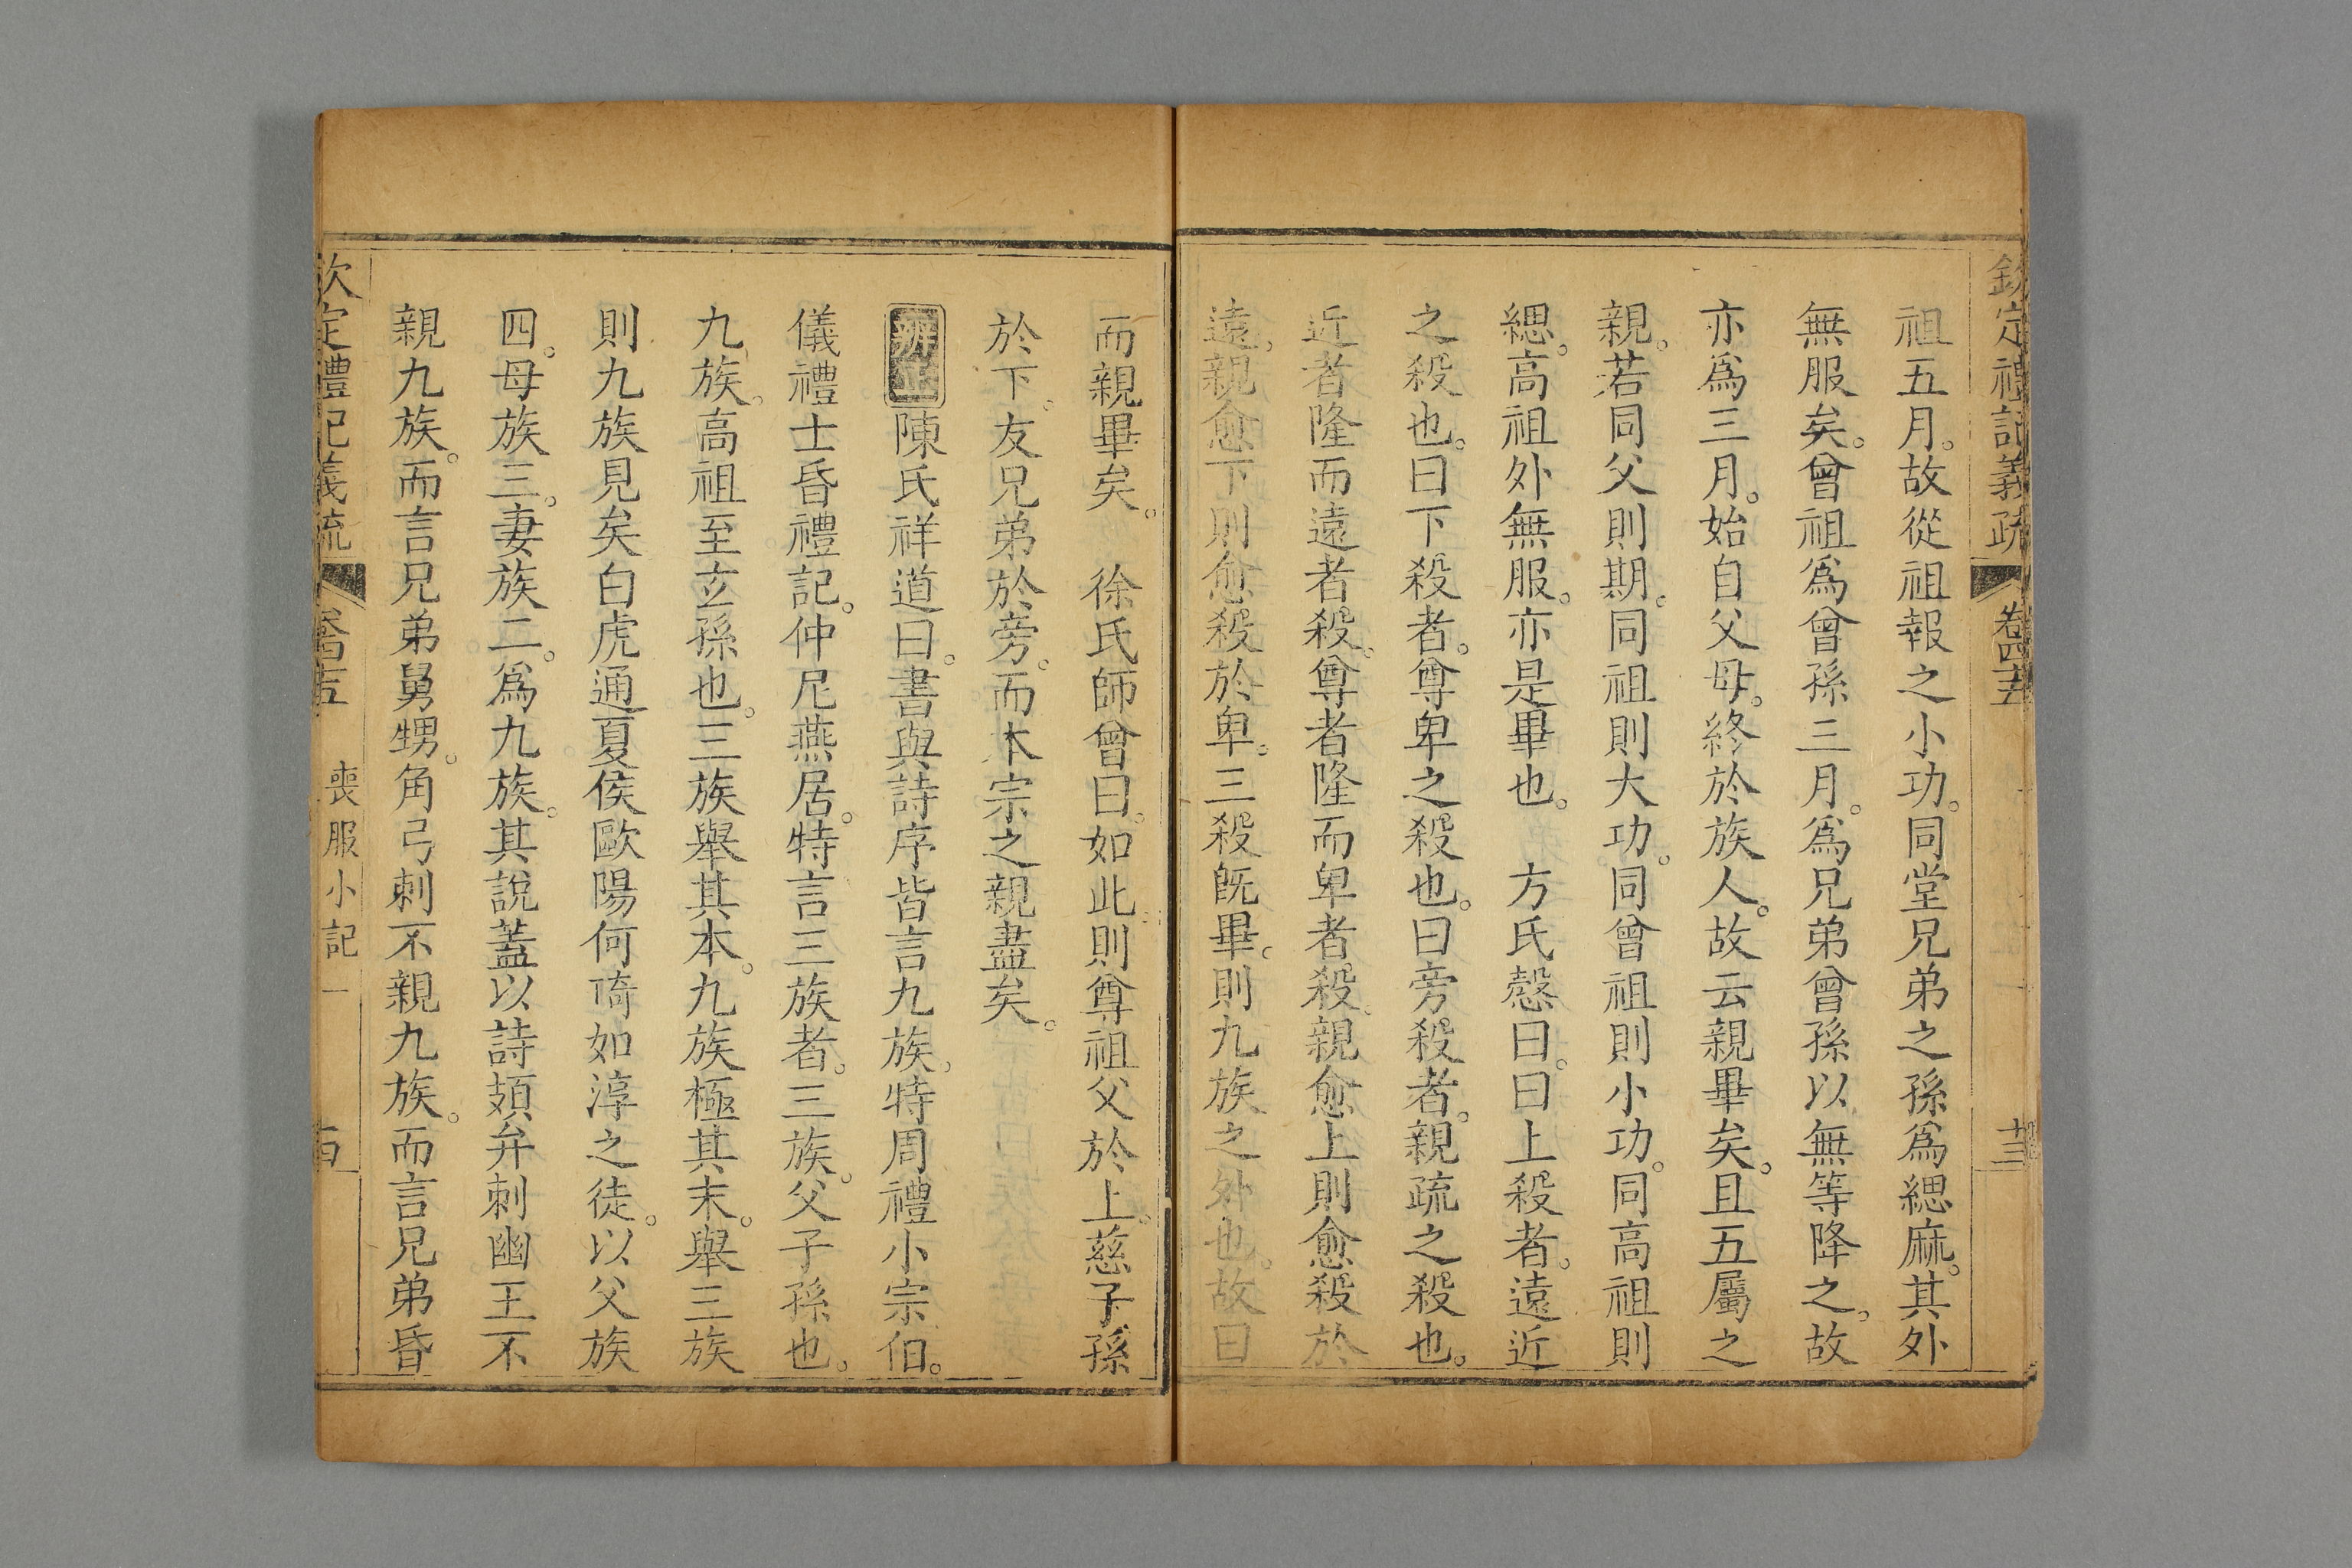 欽定禮記義疏 卷四十五 十三
祖五月。故從祖報之小功。同堂兄弟之孫爲緦麻。其外
無服矣。曾祖爲曾孫三月。爲兄弟曾孫以無等降之。故
亦爲三月。始自父母。終於族人。故云親畢矣。且五屬之
親。若同父則期。同祖則大功。同曾祖則小功。同高祖則
緦。高祖外無服。亦是畢也。 方氏慤曰。曰上殺者。遠近
之殺也。曰下殺者。尊卑之殺也。曰旁殺者。親疏之殺也。
近者隆而遠者殺。尊者隆而卑者殺。親愈上則愈殺於
遠。親愈下則愈殺於卑。三殺旣畢。則九族之外也。故曰
而親畢矣。 徐氏師曾曰。如此。則尊祖父於上。慈子孫
於下。友兄弟於旁。而本宗之親盡矣。
辨正 陳氏祥道曰。書與詩序皆言九族。特周禮小宗伯。
儀禮士昏禮記。仲尼燕居。特言三族者。三族。父子孫也。
九族。高祖至玄孫也。三族舉其本。九族極其末。舉三族
則九族見矣白虎通夏侯歐陽何琦如淳之徒。以父族
四。母族三。妻族二。爲九族。其說蓋以詩頍弁刺幽王不
親九族。而言兄弟舅甥。角弓刺不親九族。而言兄弟昏
欽定禮記義疏 卷四十五 喪服小記一